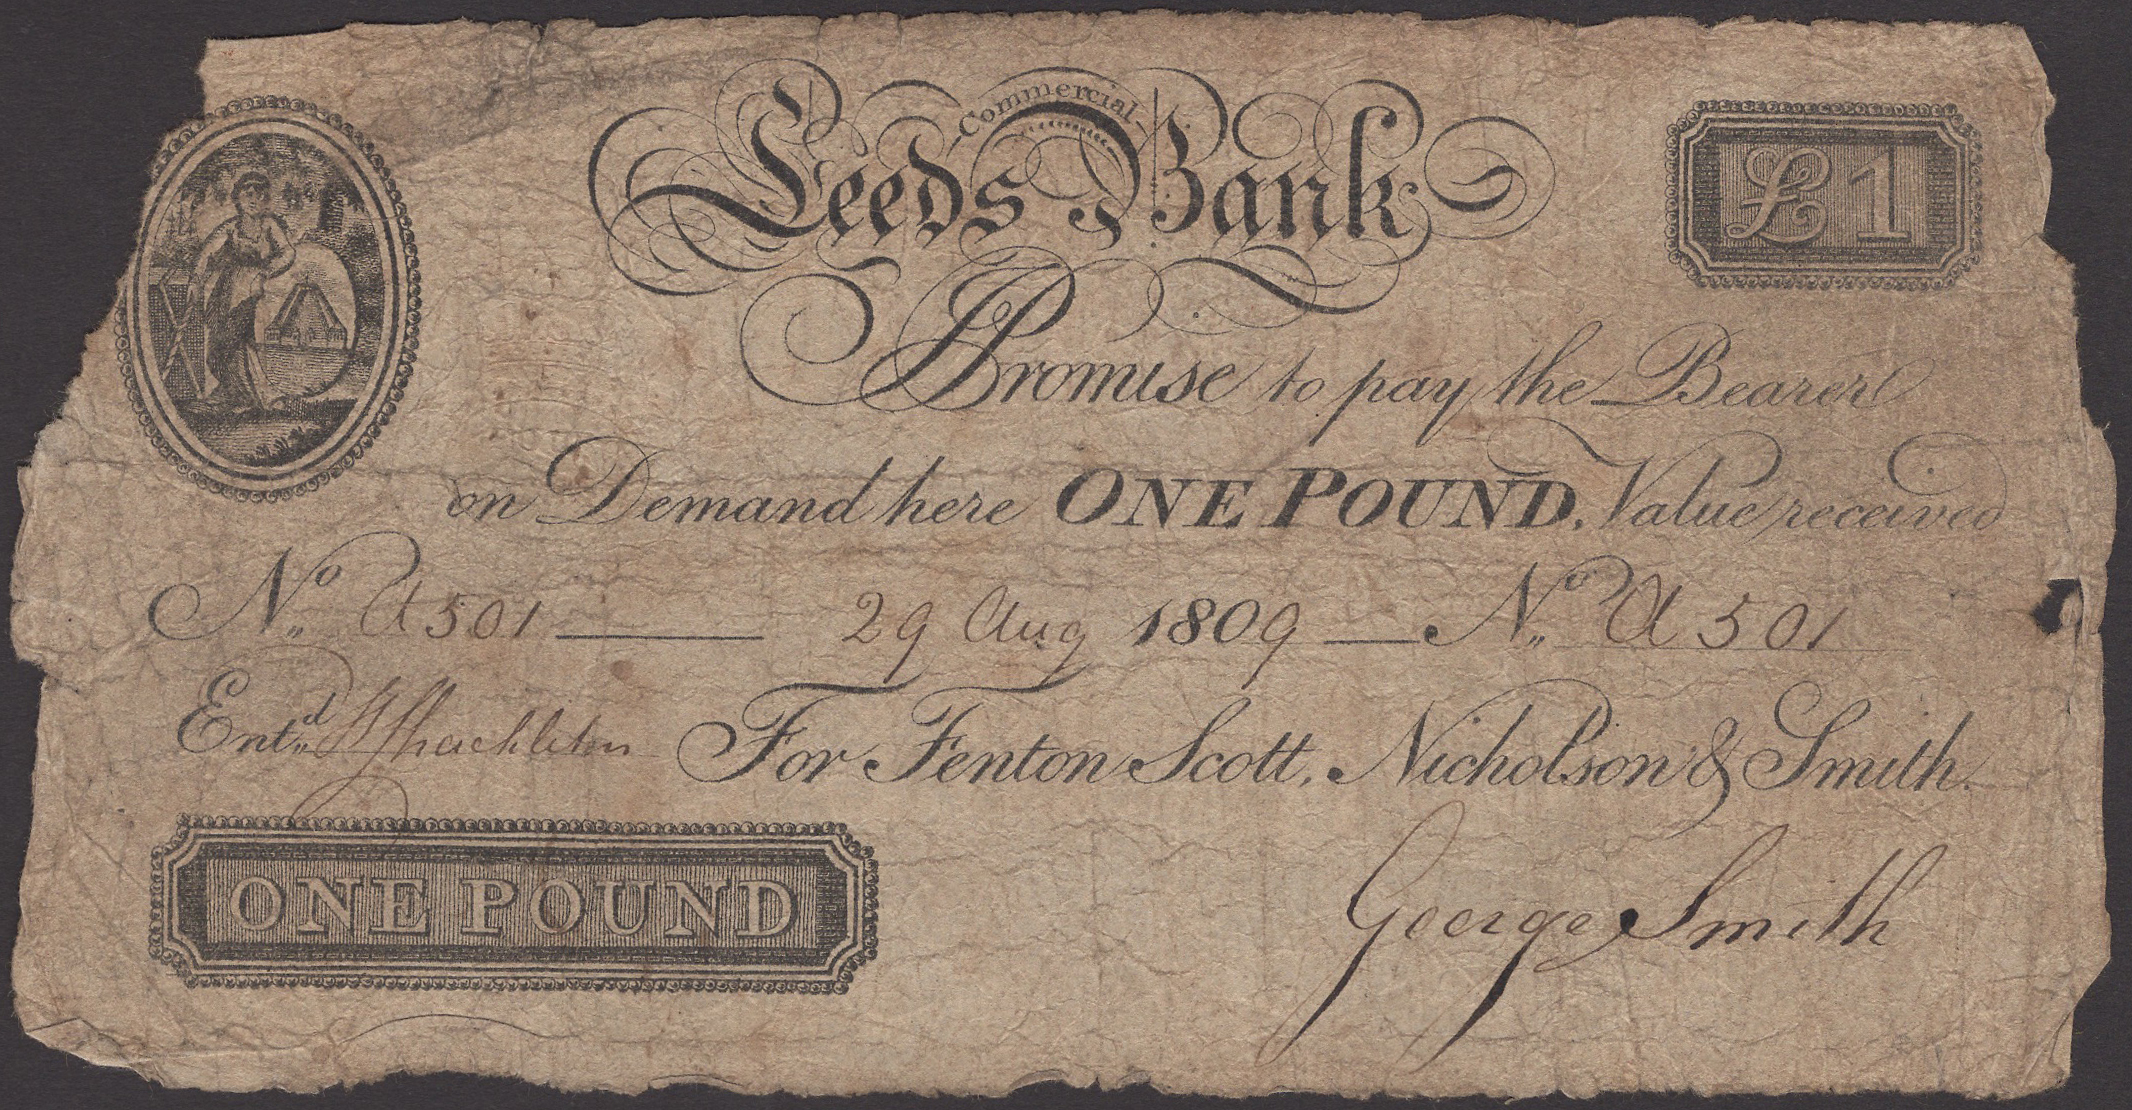 Commercial
Leeds Bank
£1
I Promise to pay the Bearer
on Demand here ONE POUND. Value received
No A501 29 Aug 1809 No A501
Entd Shackleton For Fenton Scott, Nicholson & Smith.
ONE POUND
George Smith